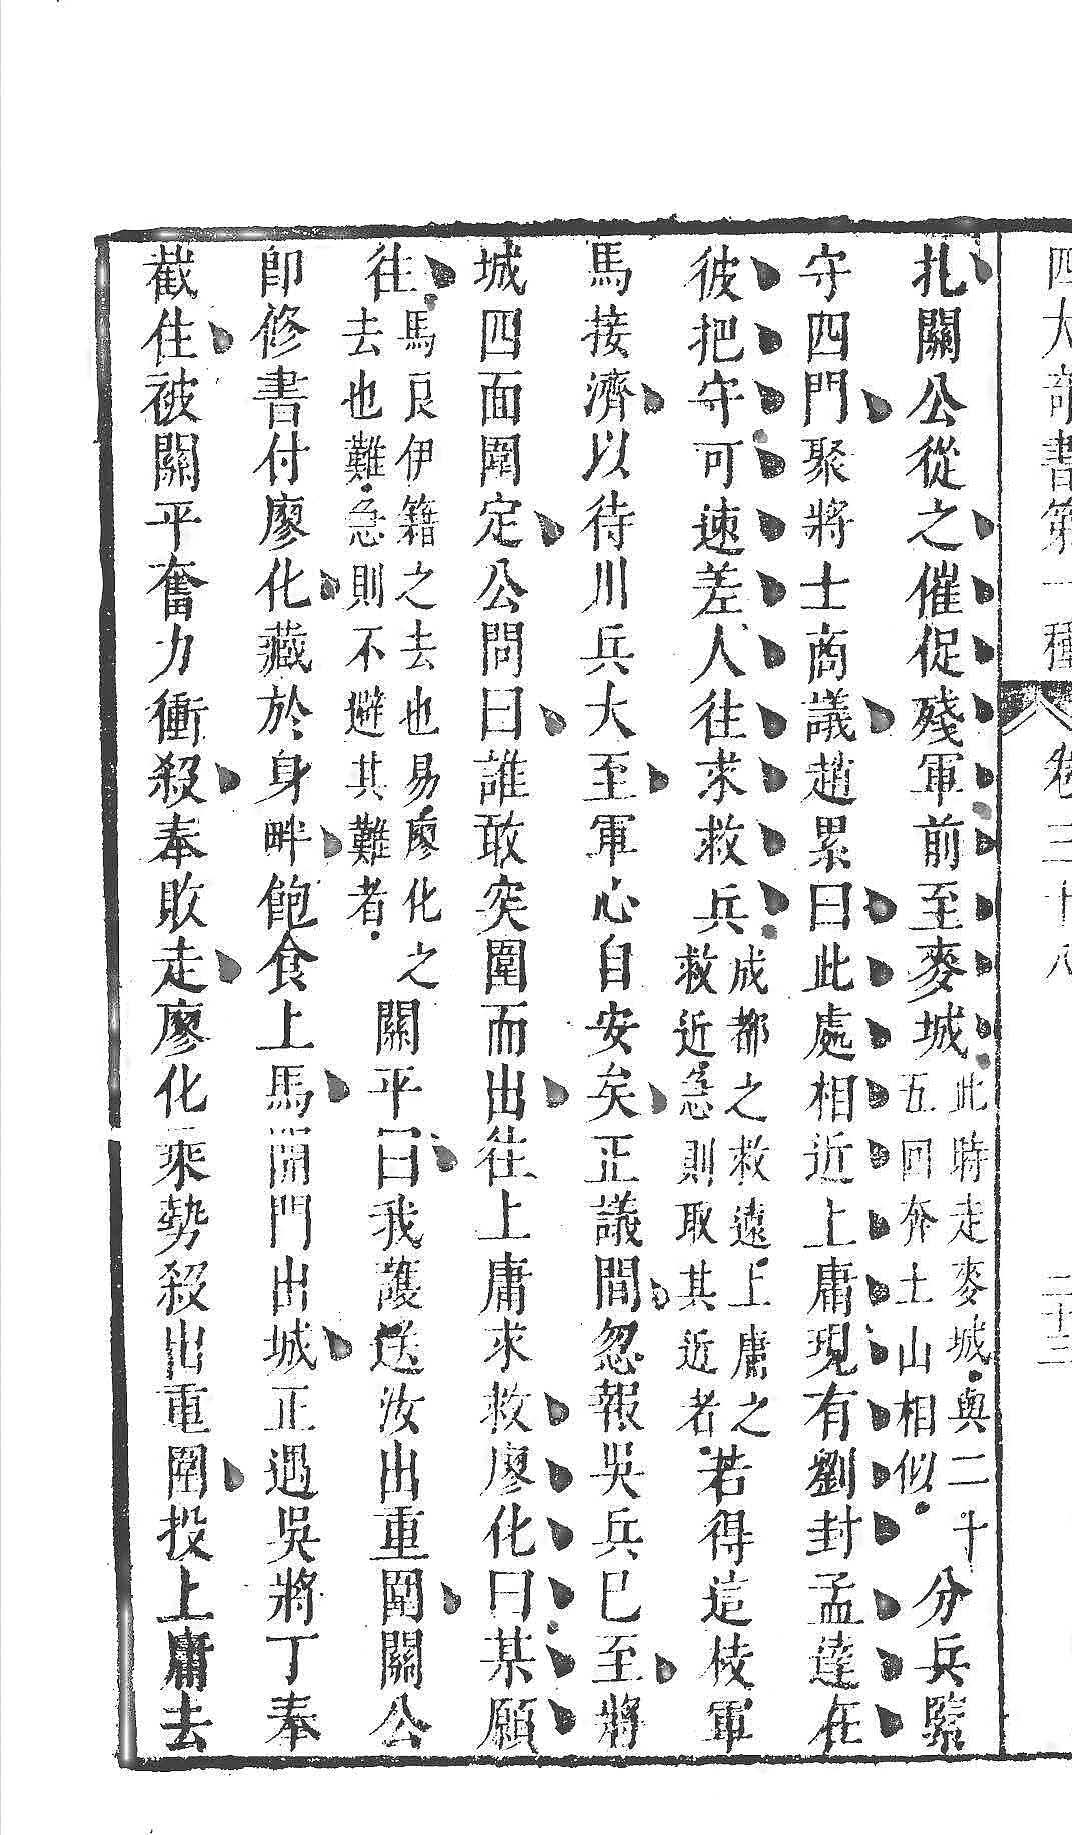 四大部書第一種 卷三十八 二十三
扎關公從之催促殘軍前至麥城此時走麥城與二十五回奔土山相似分兵緊
守四門聚將士商議趙累曰此處相近上庸現有劉封孟達在
彼把守可速差人往求救兵成都之救遠上庸之救近急則取其近者若得這枝軍
馬接濟以待川兵大至軍心自安矣正議間忽報吳兵已至將
城四面圍定公問曰誰敢突圍而出往上庸求救廖化曰某願
往馬良伊籍之去也易廖化之去也難急則不避其難者關平曰我護送汝出重圍關公
即修書付廖化藏於身畔飽食上馬開門出城正遇吳將丁奉
截住被關平奮力衝殺奉敗走廖化乘勢殺出重圍投上庸去